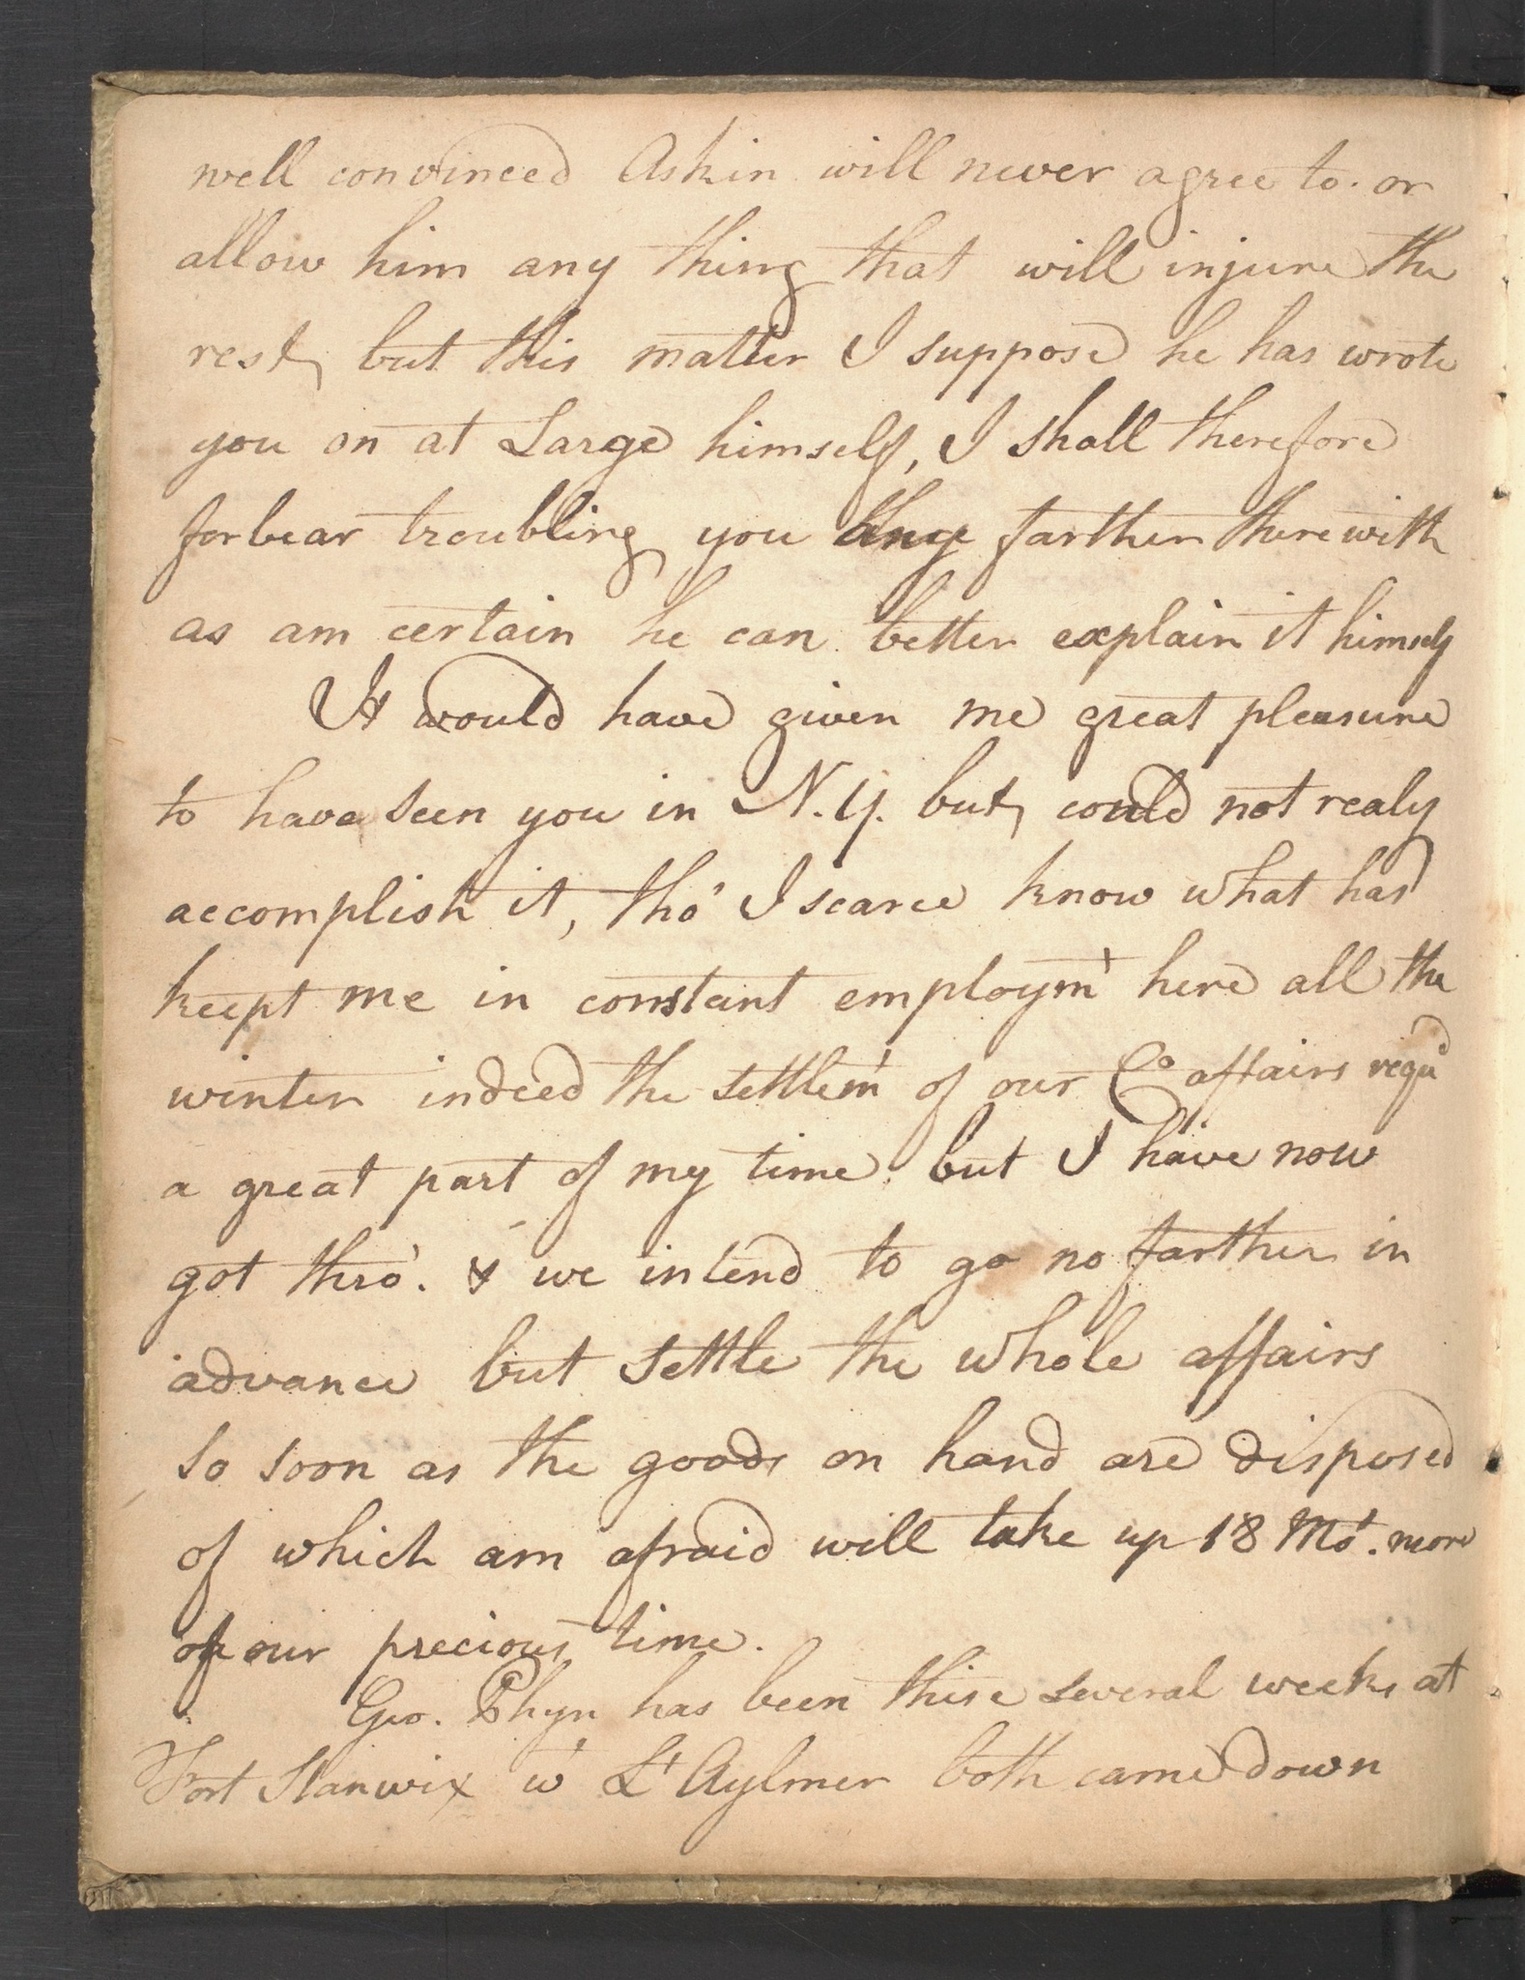 well convinced Askin will never agree to. or
allow him any thing that will injure the
rest, but this matter I suppose he has wrote
you on at Large himself, I shall therefore
forbear troubling you any farther therewith
as am certain he can better explain it himself
It would have given me great pleasure
to have seen you in N.Y. but, could not realy
accomplish it, tho' I scarce know what has
keept me in constant employmt here all the
winter indeed the settlemt of our Co affairs requd
a great part of my time. but I have now
got thro'. & we intend to go no farther in
advance but settle the whole affairs
so soon as the goods on hand are disposed
of which am afraid will take up 18 Mo. more
of our precious time.
Geo. Phyn has been these several weeks at
Fort Stanwix wt Lt Aylmer both came down